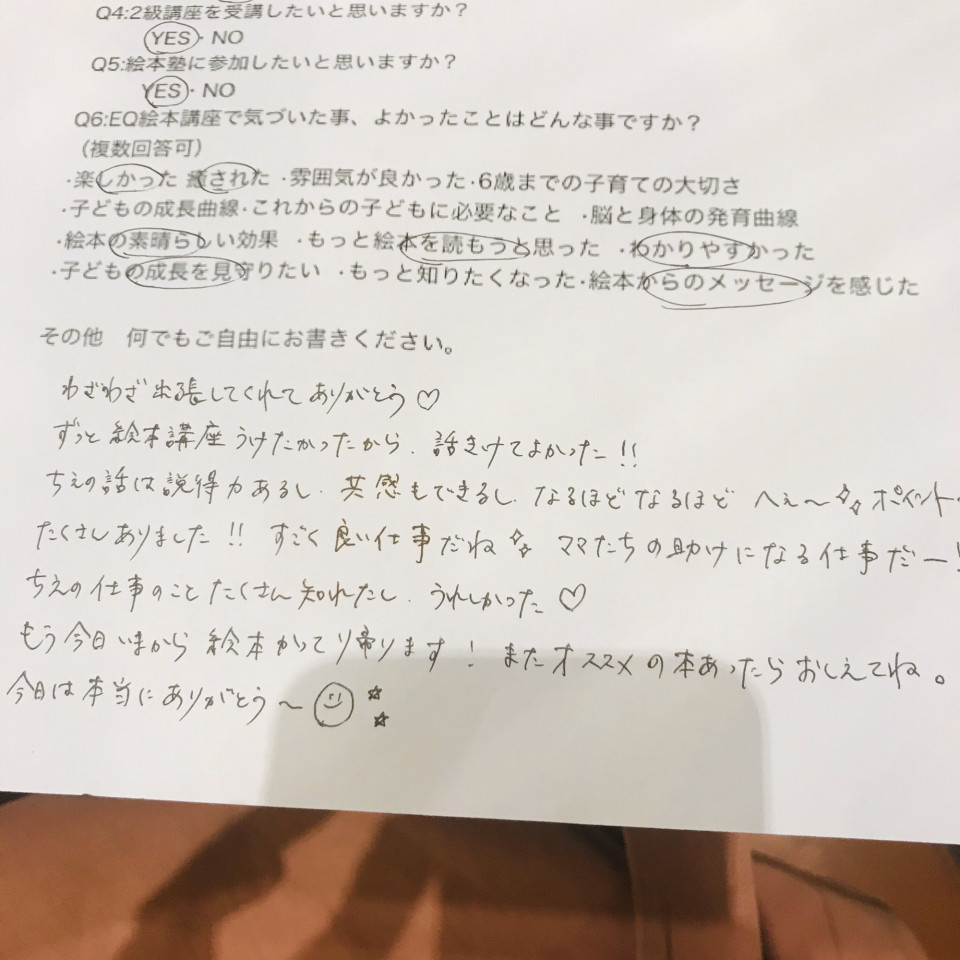 Q4:2級講座を受講したいと思いますか？
YES・NO
Q5:絵本塾に参加したいと思いますか？
YES・NO
Q6:EQ絵本講座で気づいた事、よかったことはどんな事ですか？
（複数回答可）
・楽しかった 癒された ・雰囲気が良かった・6歳までの子育ての大切さ
・子どもの成長曲線・これからの子どもに必要なこと ・脳と身体の発育曲線
・絵本の素晴らしい効果 ・もっと絵本を読もうと思った ・わかりやすかった
・子どもの成長を見守りたい ・もっと知りたくなった・絵本からのメッセージを感じた
その他 何でもご自由にお書きください。
わざわざ出張してくれてありがとう♡
ずっと絵本講座うけたかったから、話きけてよかった!!
ちえの話は説得力あるし、共感もできるし、なるほどなるほど へぇ〜☆☆ ポイント
たくさんありました!! すごく良い仕事だね☆☆ ママたちの助けになる仕事だー!
ちえの仕事のこと たくさん知れたし、うれしかった♡
もう今日いまから 絵本かって帰ります! またオススメの本あったらおしえてね。
今日は本当にありがとう〜☺☆☆